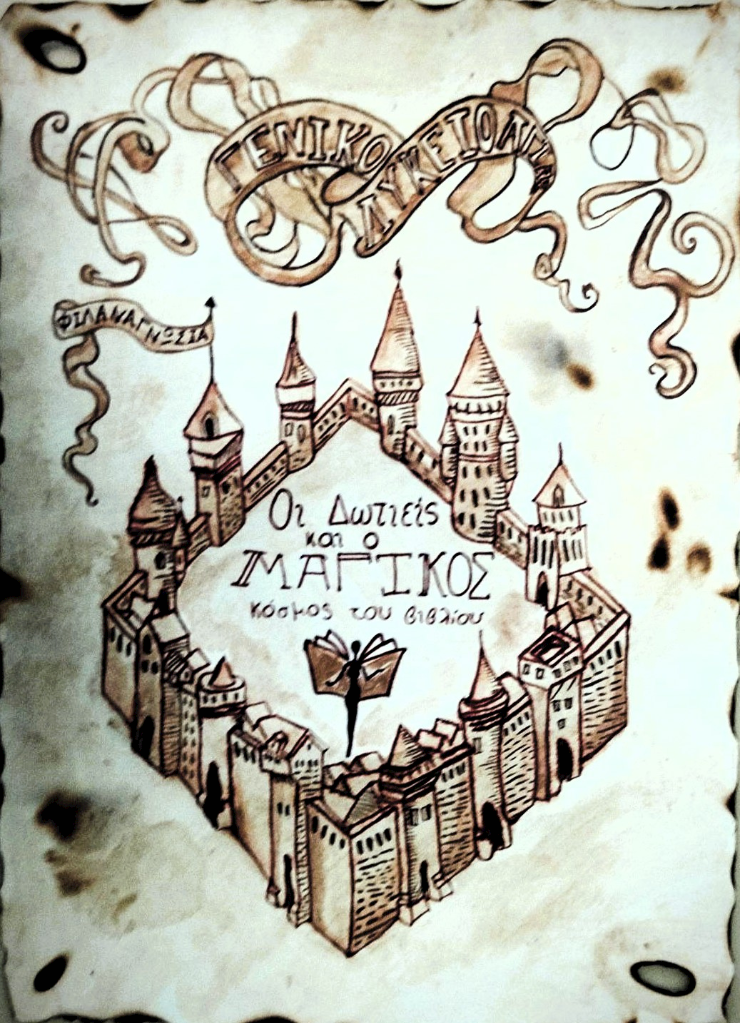 ΓΕΝΙΚΟ
ΛΥΚΕΙΟ ΑΓΙΑΣ
ΦΙΛΑΝΑΓΝΩΣΙΑ
Οι Δωτιείς
και ο
ΜΑΓΙΚΟΣ
κόσμος του βιβλίου